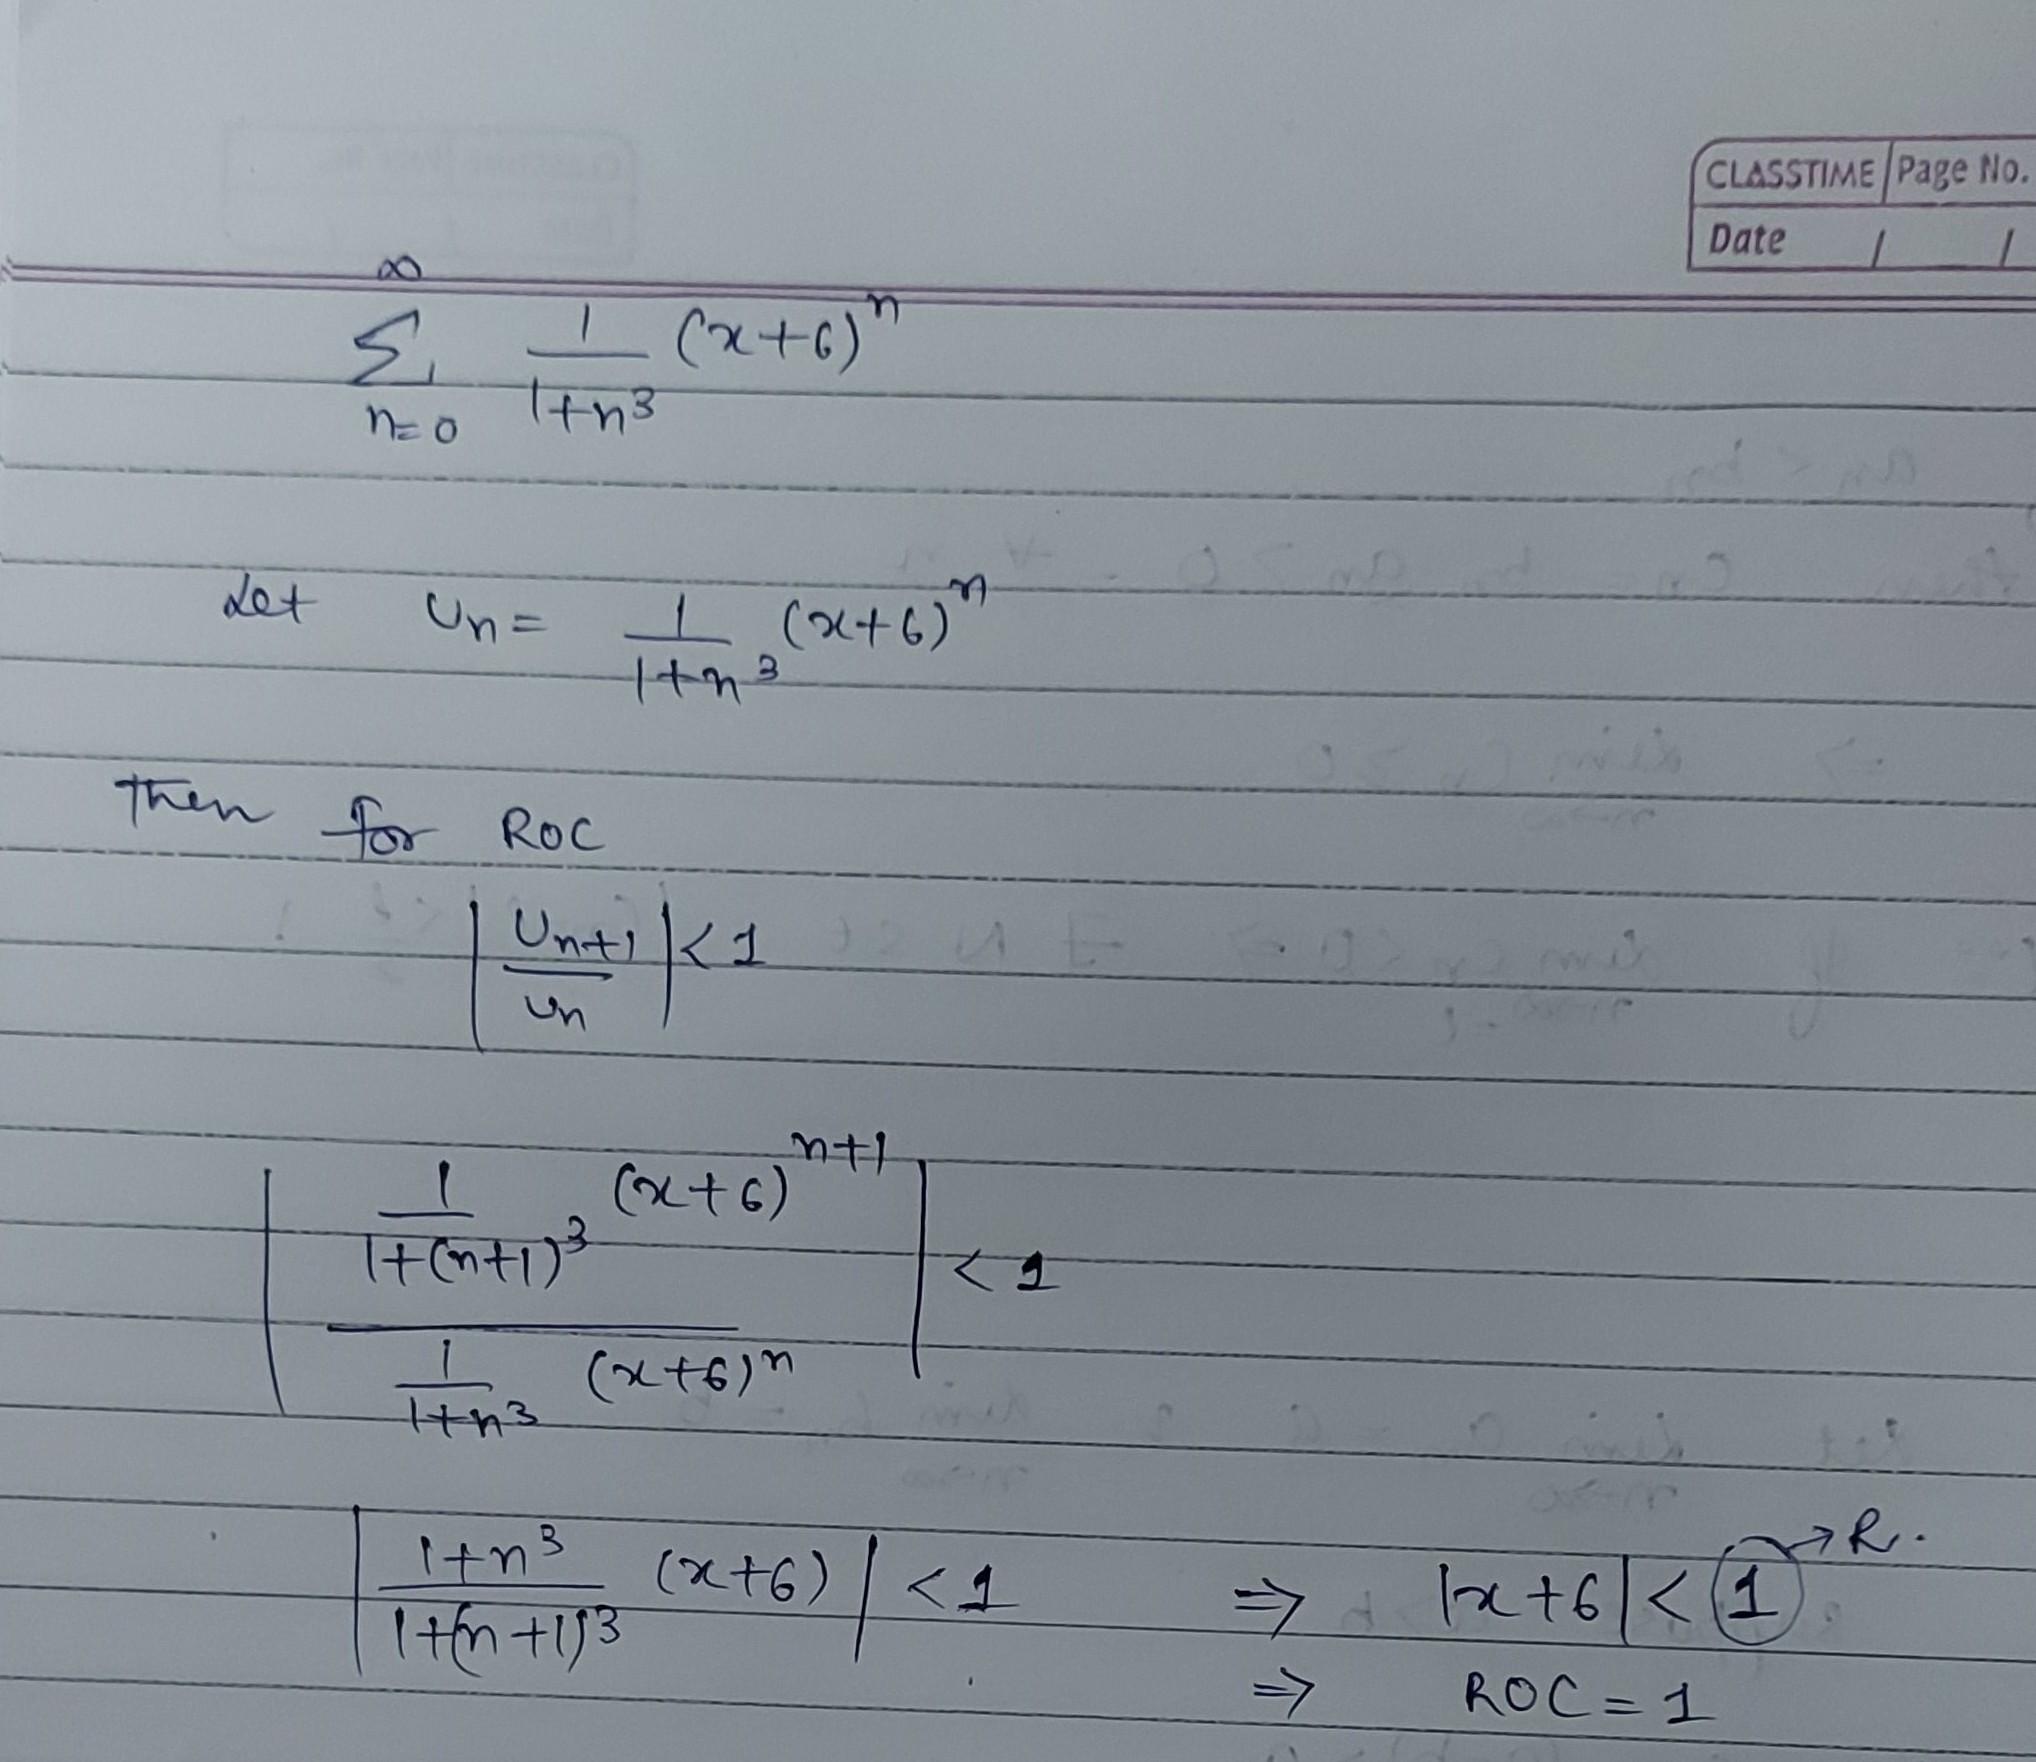 CLASSTIME Page No.
Date / /
∞
Σ 1/(1+n³) (x+6)ⁿ
n=0
Let Un = 1/(1+n³) (x+6)ⁿ
Then for ROC
|Un+1/un| < 1
|(1/(1+(n+1)³) (x+6)ⁿ⁺¹)/(1/(1+n³) (x+6)ⁿ)| < 1
|(1+n³)/(1+(n+1)³) (x+6)| < 1 ⇒ |x+6| < 1 → R.
⇒ ROC = 1